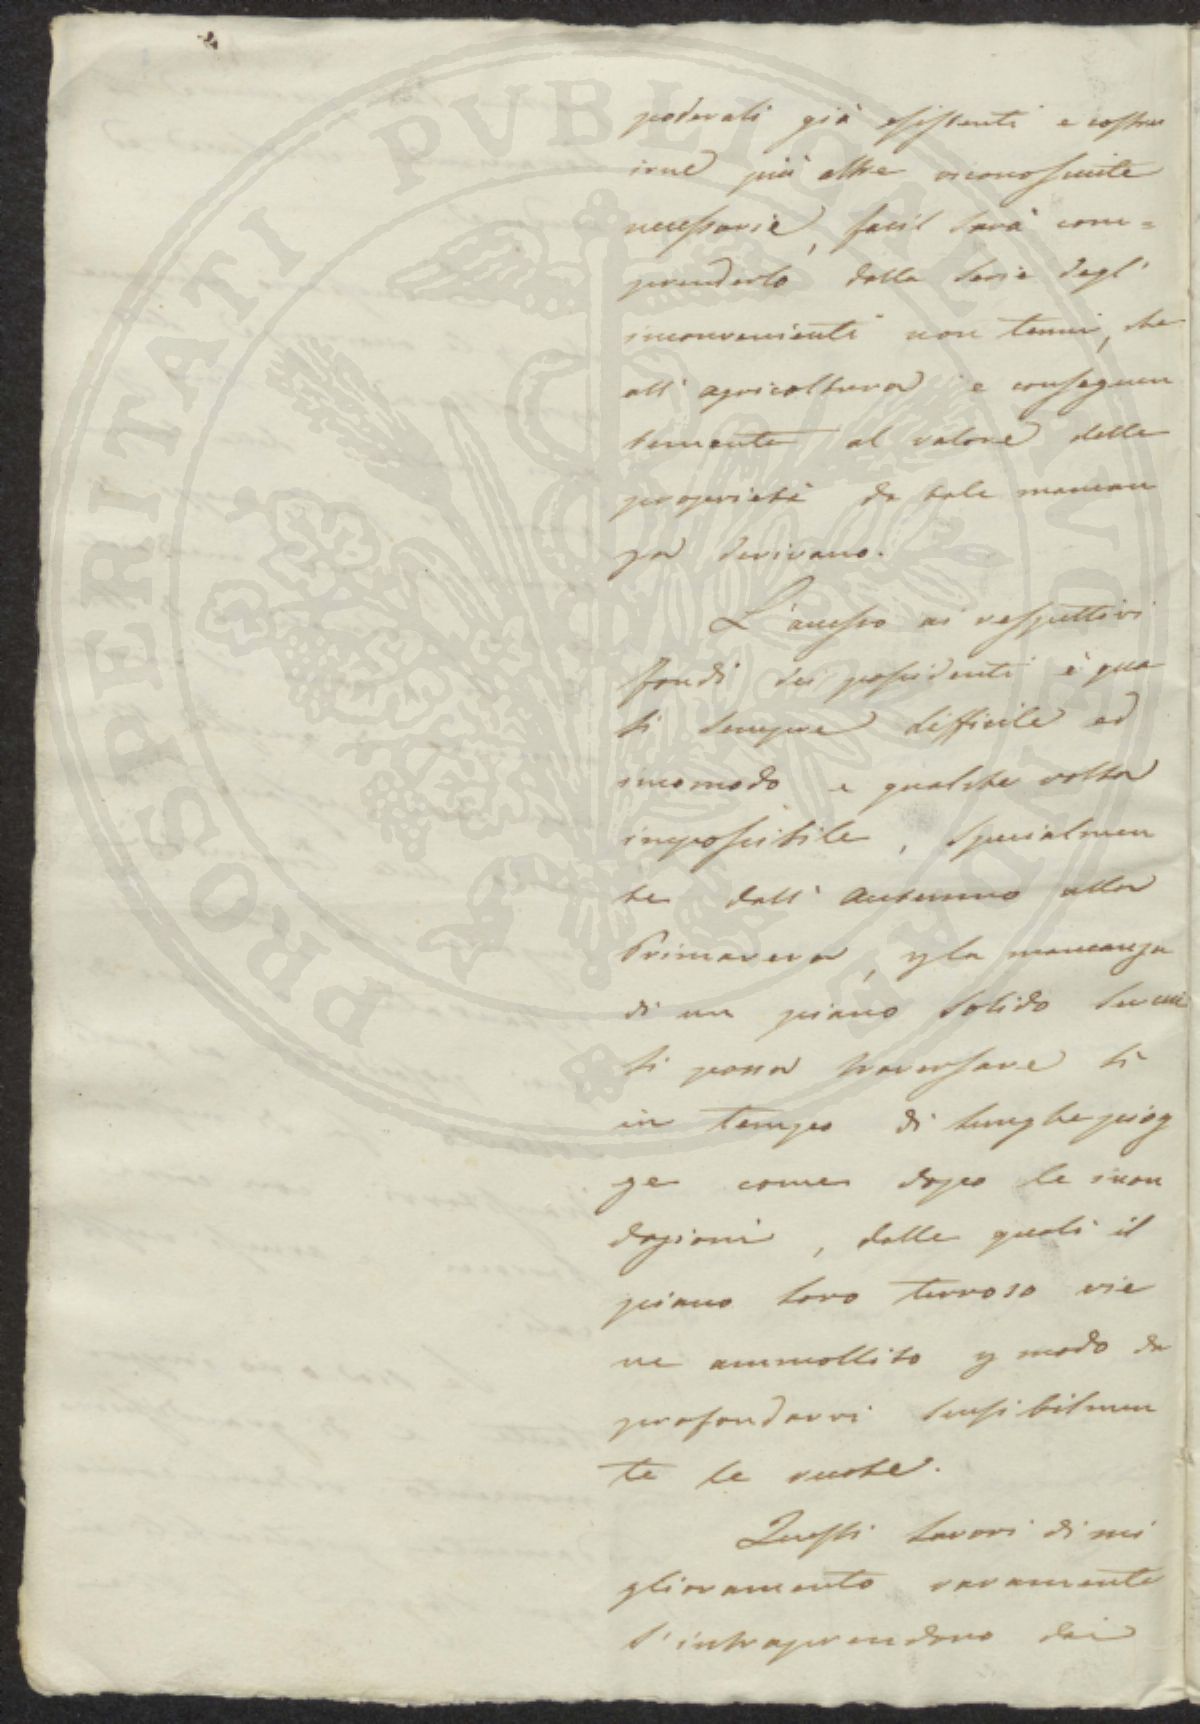 poderali già esistenti e costru
irne più altre riconosciute
necessarie, facil sarà com=
prenderlo dalla serie degl'
inconvenienti non tenui, che
all'agricoltura e conseguen
temente al valore delle
proprietà da tale mancan
za derivano.
L'accesso ai respettivi
fondi dei possidenti è qua
si sempre difficile ed
incomodo e qualche volta
impossibile, specialmen
te dall'Autunno alla
Primavera, p la mancanza
di un piano solido su cui
si possa traversare sì
in tempo di lunghe piog
ge come dopo le inon
dazioni, dalle quali il
piano loro terroso vie
ne ammollito p modo da
profondarvi sensibilmen
te le ruote.
Questi lavori di mi
glioramento raramente
s'intraprendono dai
PROSPERITATI PVBLICAE AVGENDAE